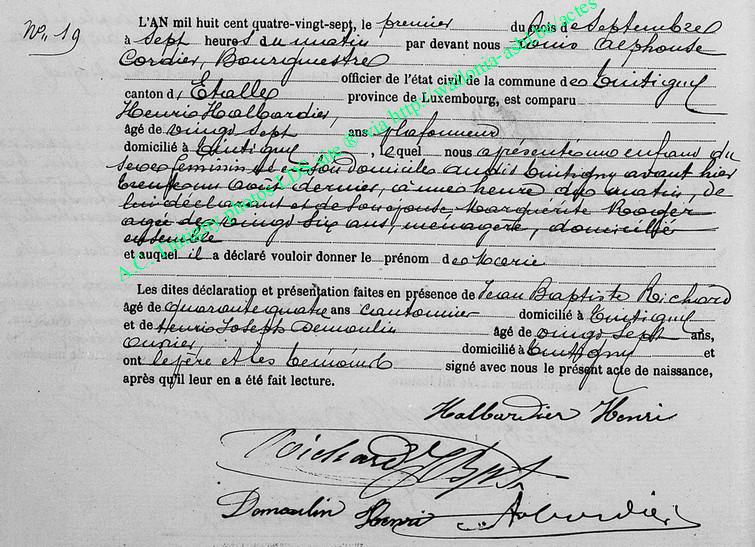 No 19
L'AN mil huit cent quatre-vingt-sept, le premier du mois de Septembre
à sept heures du matin par devant nous Louis Alphonse
Cordier, Bourgmestre
officier de l'état civil de la commune de Tintigny
canton d'Etalle province de Luxembourg, est comparu
Henri Halbardier,
âgé de vingt sept ans plafonneur
domicilié à Tintigny, lequel nous a présenté une enfant du
sexe féminin née en son domicile audit Tintigny avant hier
trente un août dernier, à une heure du matin, de
lui déclarant et de son épouse Marguerite Roger
agée de vingt six ans, ménagère, domiciliée
ensemble
et auquel il a déclaré vouloir donner le prénom de Marie
Les dites déclaration et présentation faites en présence de Jean Baptiste Richard
âgé de quarante quatre ans cantonnier domicilié à Tintigny
et de Henri Joseph Demoulin âgé de vingt sept ans,
ouvrier, domicilié à Tintigny et
ont le père et les témoins signé avec nous le présent acte de naissance,
après qu'il leur en a été fait lecture.
Halbardier Henri
Richard JBpt
Demoulin Henri
A.C. Tintigny photos LDS site ® via http://wallonia-asbl.be/actes